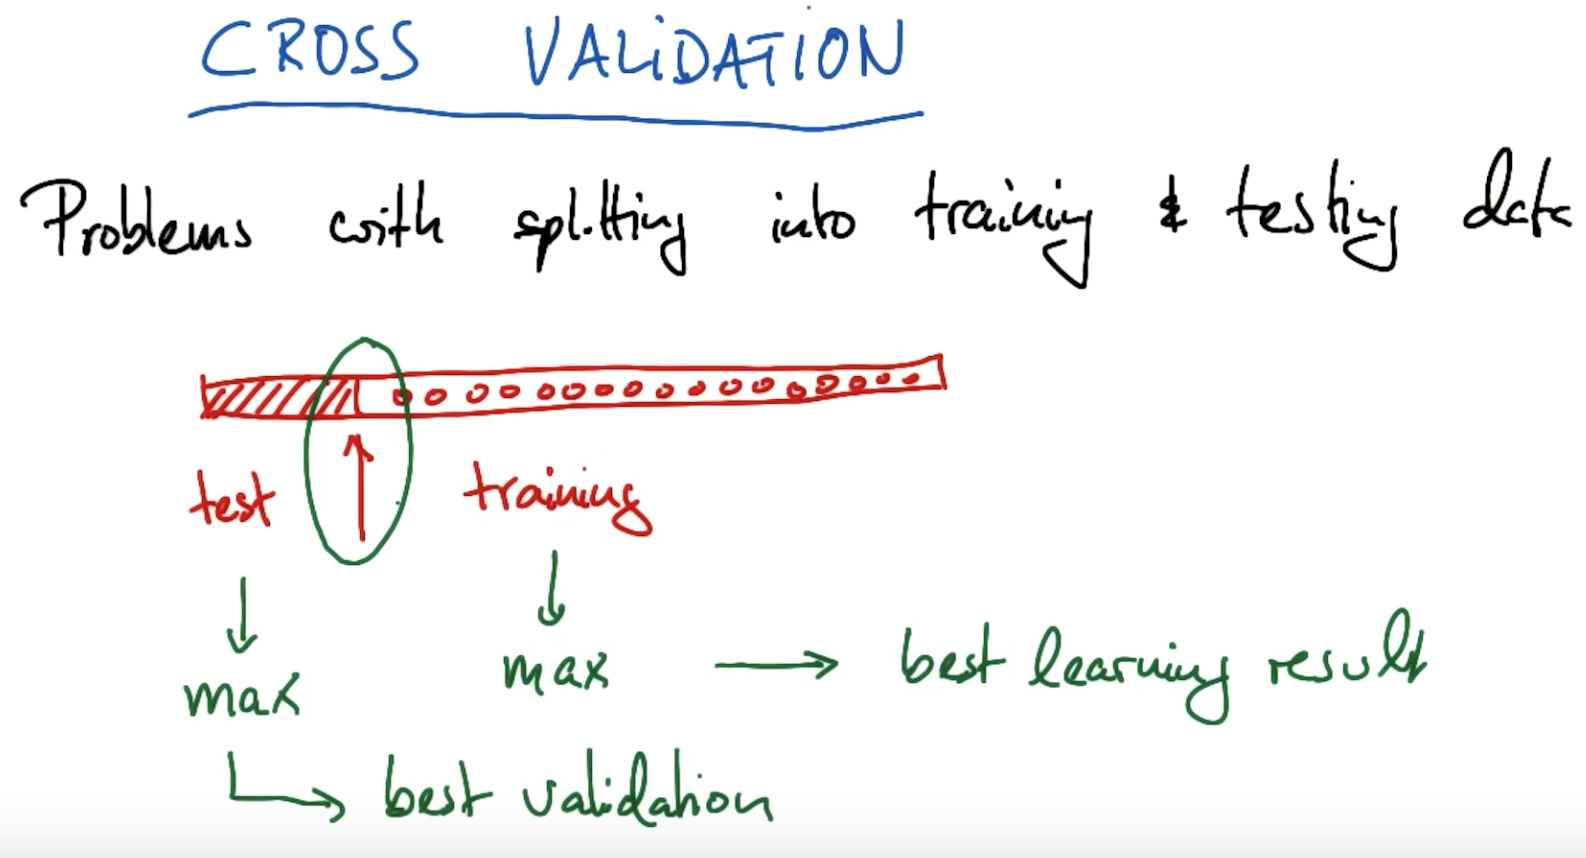 CROSS VALiDATiON
Problems with splitting into training & testing data
test training
max max → best learning result
best validation